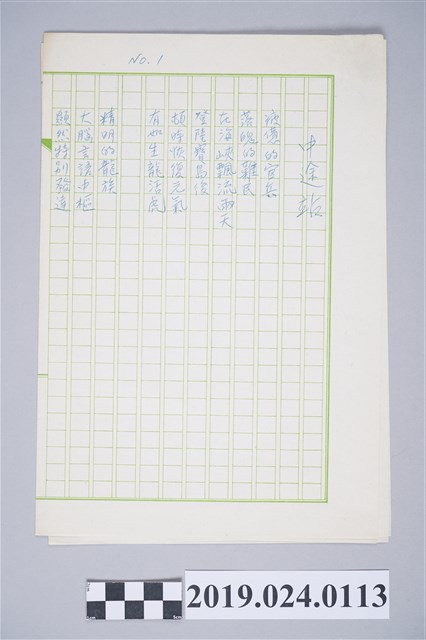 No. 1
中途站
疲憊的官兵
落魄的難民
在海峽飄流兩天
登陸寶島後
頓時恢復元氣
有如生龍活虎
精明的龍族
大腦言語中樞
顯然特別發達
5cm
2019.024.0113